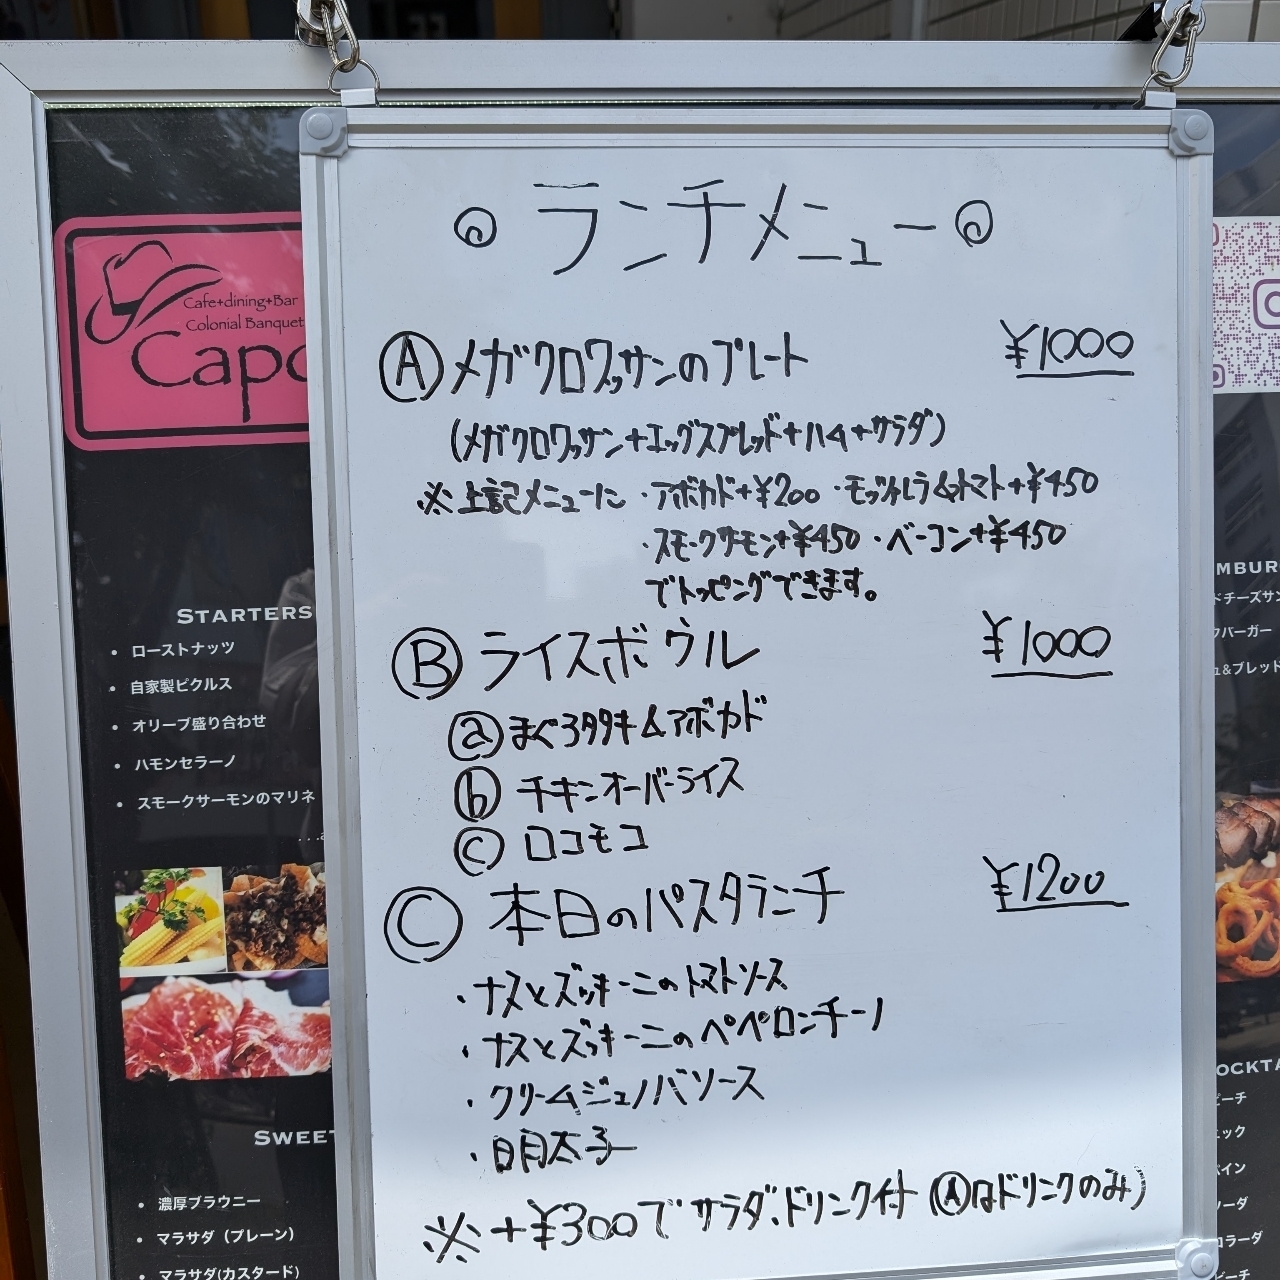 ランチメニュー
Ⓐ メガクロワッサンのプレート ¥1000
(メガクロワッサン+エッグスプレッド+ハム+サラダ)
※上記メニューに ・アボカド+¥200 ・モッツァレラ&トマト+¥450
・スモークサーモン+¥450 ・ベーコン+¥450
でトッピングできます。
Ⓑ ライスボウル ¥1000
ⓐ まぐろタタキ&アボカド
ⓑ チキンオーバーライス
ⓒ ロコモコ
Ⓒ 本日のパスタランチ ¥1200
・ナスとズッキーニのトマトソース
・ナスとズッキーニのペペロンチーノ
・クリームジェノバソース
・明太子
※ +¥300でサラダ、ドリンク付 (Ⓐはドリンクのみ)
Cafe+dining+Bar
Colonial Banquet
Capo
STARTERS
• ローストナッツ
• 自家製ピクルス
• オリーブ盛り合わせ
• ハモンセラーノ
• スモークサーモンのマリネ
SWEET
• 濃厚ブラウニー
• マラサダ（プレーン）
• マラサダ(カスタード)
MBUR
ドチーズサン
バーガー
&ブレッド
OCKTA
ピーチ
ニック
パイン
ソーダ
コラーダ
ピーチ